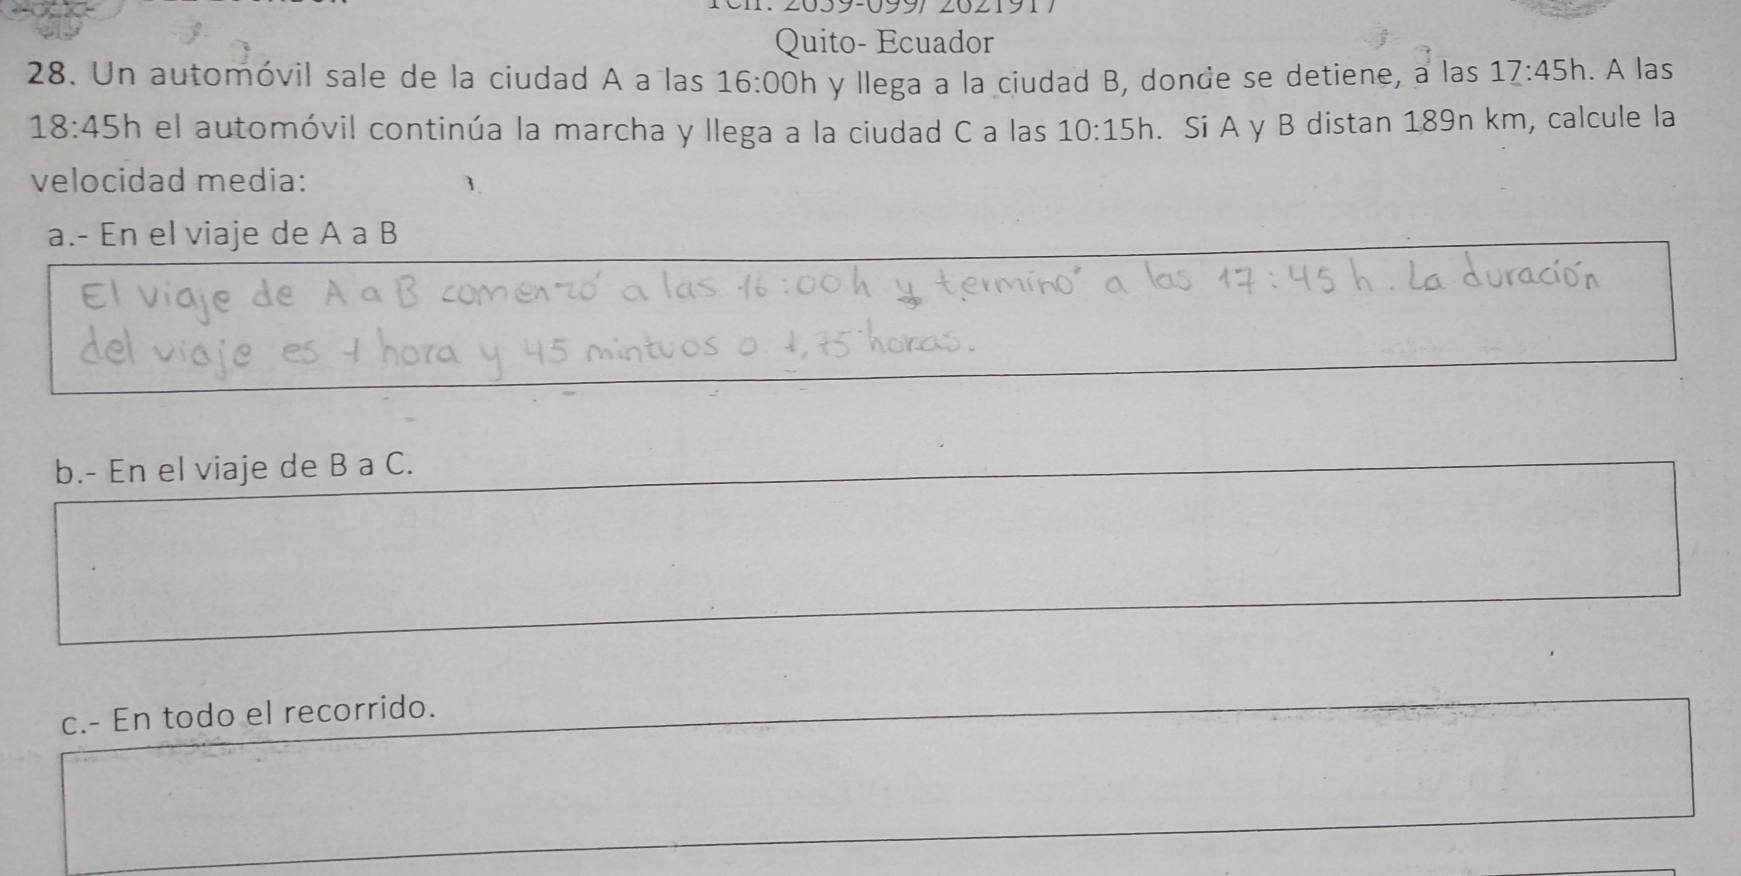 Quito- Ecuador
28. Un automóvil sale de la ciudad A a las 16:00h y llega a la ciudad B, donde se detiene, a las 17:45h. A las
18:45h el automóvil continúa la marcha y llega a la ciudad C a las 10:15h. Si A y B distan 189n km, calcule la
velocidad media:
a.- En el viaje de A a B
El viaje de A a B comenzó a las 16:00h y terminó a las 17:45h. La duración
del viaje es 1 hora y 45 mintuos o 1,75 horas.
b.- En el viaje de B a C.
c.- En todo el recorrido.